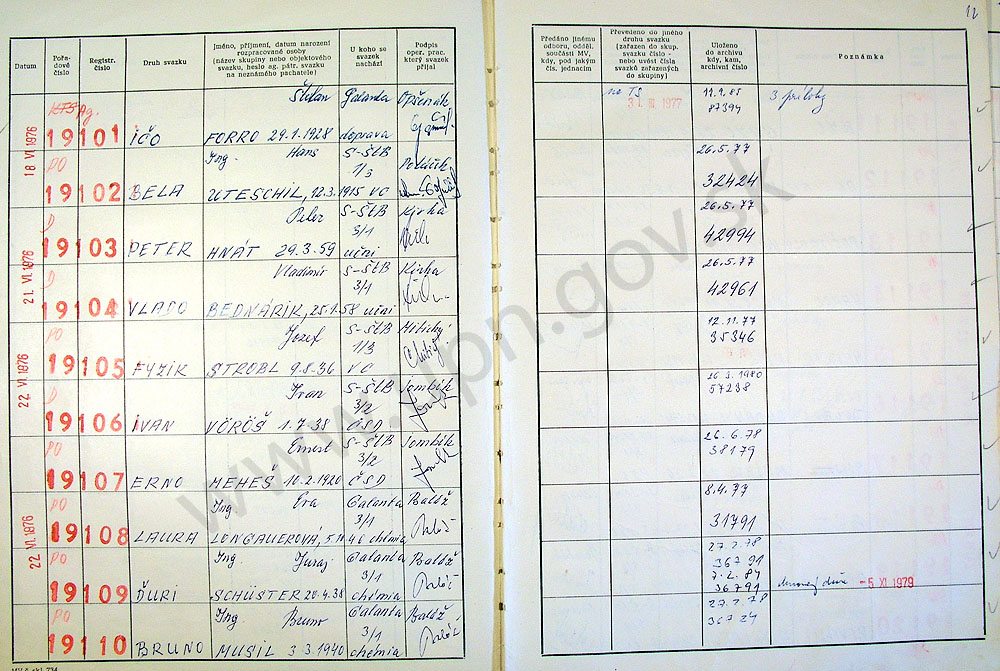 12
Datum
Pořadové číslo
Registr. číslo
Druh svazku
Jméno, příjmení, datum narození
rozpracované osoby
(název skupiny nebo objektového
svazku, heslo ag. pátr. svazku
na neznámého pachatele)
U koho se
svazek
nachází
Podpis
oper. prac.
který svazek
přijal
Předáno jinému
odboru, odděl.
součásti MV,
kdy, pod jakým
čís. jednacím
Převedeno do jiného
druhu svazku
(zařazen do skup.
svazku číslo -
nebo uvést čísla
svazků zařazených
do skupiny)
Uloženo
do archivu
kdy, kam,
archivní číslo
Poznámka
18 VI. 1976
KTS Ag. Štefan Galanta Opšenák
19101 IČO FORRO 29.1.1928 doprava
na TS 31. III 1977 87394 3 prílohy
PO Ing. Hans S-ŠtB 1/3 Poláčik
19102 BELA UTESCHIL, 12.3.1915 VC
26.5.77
32424
21. VI. 1976
D Peter S-ŠtB 3/1 Kirha
19103 PETER HNÁT 29.3.59 učni
26.5.77
42994
D Vladimír S-ŠtB 3/1 Kirha
19104 VLADO BEDNÁRIK, 25.1.58 učni
26.5.77
42961
22. VI. 1976
PO Jozef S-ŠtB 1/3
19105 FYZIK STROBL 9.8.36 VC
12.11.77
35346
D Ivan S-ŠtB 3/2 Sombik
19106 IVAN VÖRÖŠ 1.7.38 ČSD
1980
57238
PO Ernest S-ŠtB 3/2 Sombik
19107 ERNO MEHEŠ 10.2.1920 ČSD
26.6.78
38179
22. VI. 1976
PO Ing. Eva Galanta 3/1 Baláž
19108 LAURA LONGAUEROVÁ, 46 chémia Baláž
8.4.77
31791
PO Ing. Juraj Galanta 3/1 Baláž
19109 ĎURI SCHÜSTER 20.4.38 chémia Baláž
27.2.78
36791
7.2.84
36791
-5 XI. 1979
PO Ing Bruno Galanta 3/1 Baláž
19110 BRUNO MUSIL 3.3.1940 chémia Baláž
27.2.78
www.upn.gov.sk